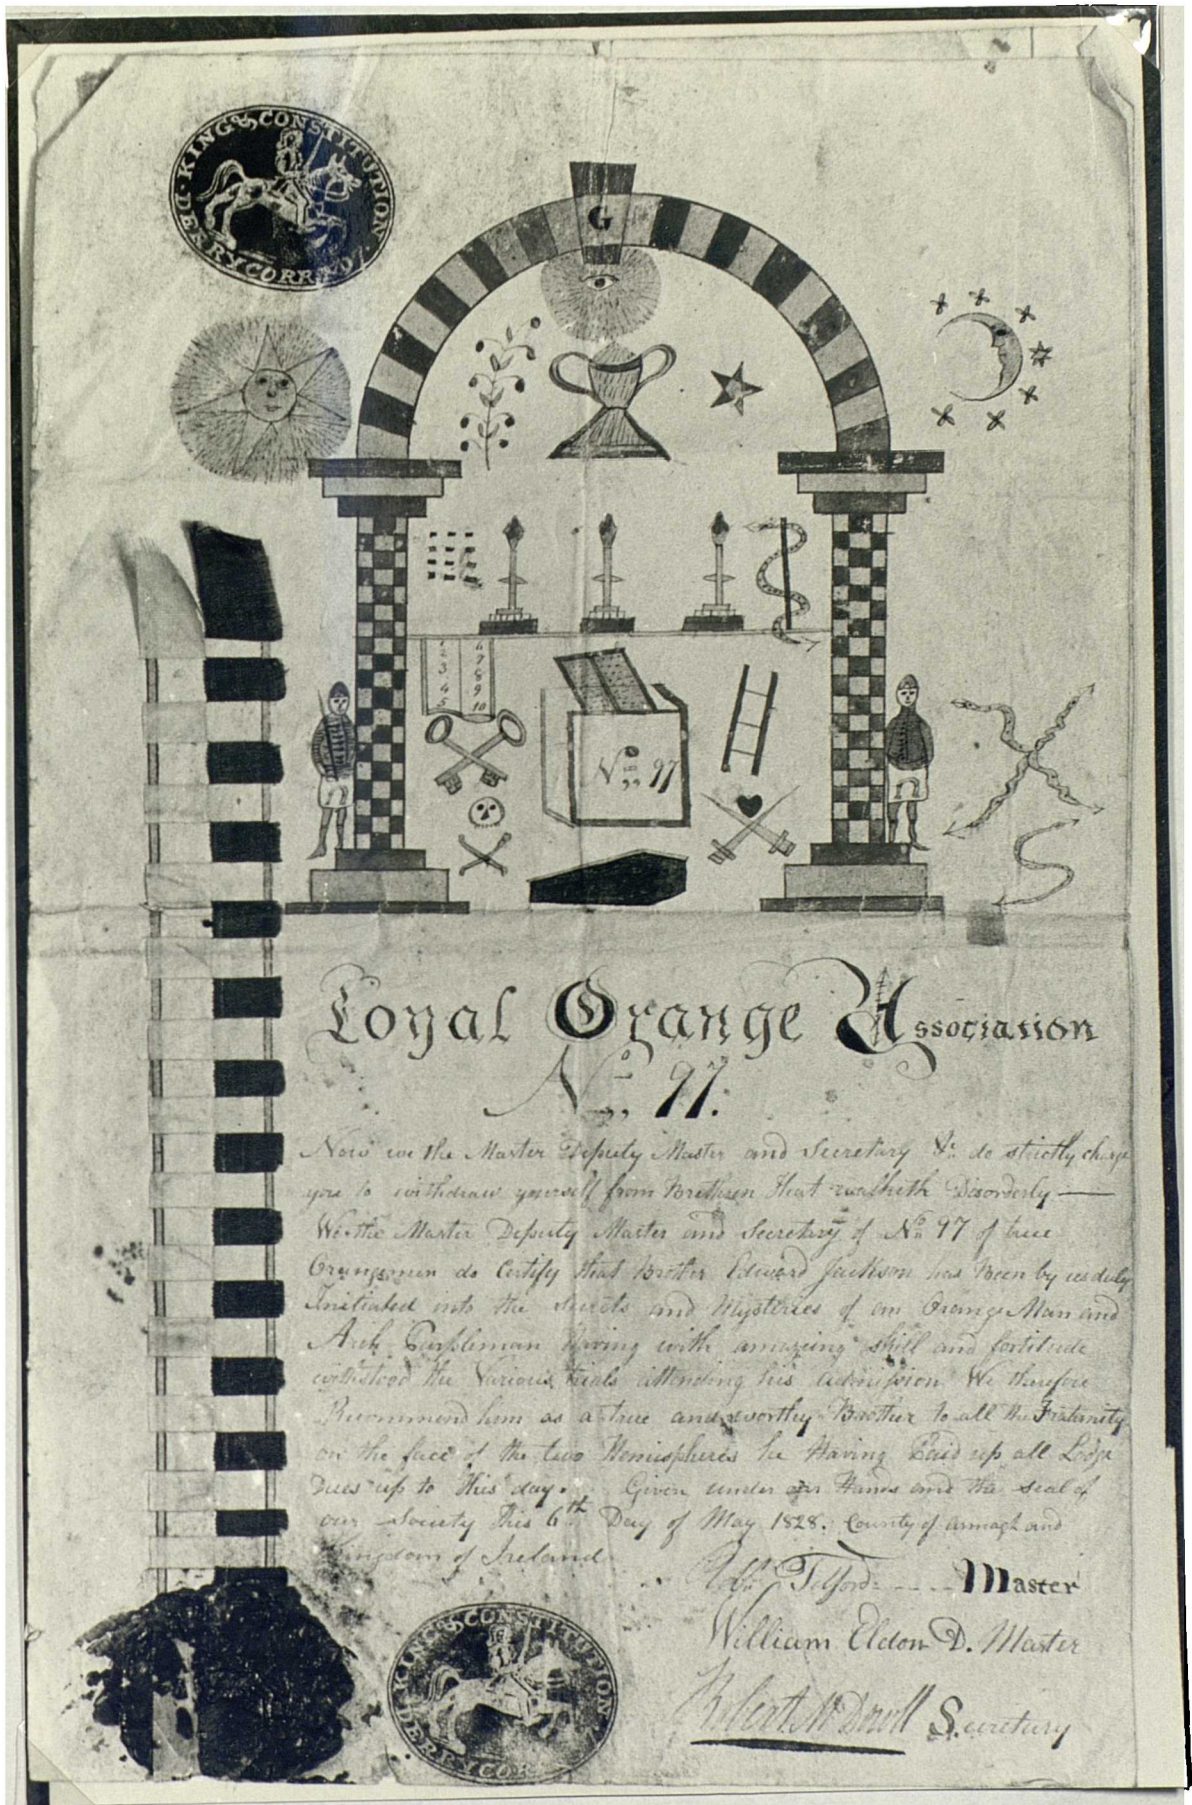 KING & CONSTITUTION
DERRYCORR
G
1 6
2 7
3 8
4 9
5 10
No 97
Loyal Orange Association
No 97.
Now we the Master Deputy Master and Secretary &c do strictly charge
you to withdraw yourself from Brethren that walketh Disorderly —
We the Master Deputy Master and Secretary of No 97 of true
Orangemen do Certify that Brother Edward Jackson has Been by us duly
Initiated into the Secrets and Mysteries of an Orange Man and
Arch Purpleman Having with amazing skill and fortitude
withstood the Various trials attending his admission We therefore
Recommend him as a true and worthy Brother to all the Fraternity
on the face of the two Hemispheres he Having Paid up all Lodge
Dues up to this day. Given under our Hands and the seal of
our Society this 6th Day of May 1828. County of Armagh and
Kingdom of Ireland
Telford - - - Master
William Eldon D. Master
Robert McDowll Secretary
KING & CONSTITUTION
DERRYCOR